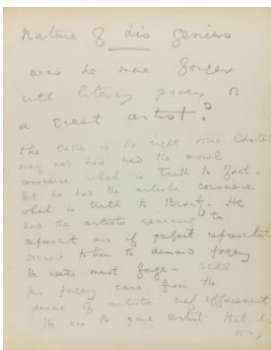 Nature of his genius
was he mere forger
with literary power or
a great artist?
The latter is the right view. Chatterton
may not have had the moral
conscience which is Truth to fact -
but he had the artistic conscience
which is truth to Beauty. He
had the artist's yearning to
represent and if perfect representation
seemed to him to demand forgery
he needs must forge - Still
this forgery came from the
desire of artistic self effacement.
He was the pure artist that is